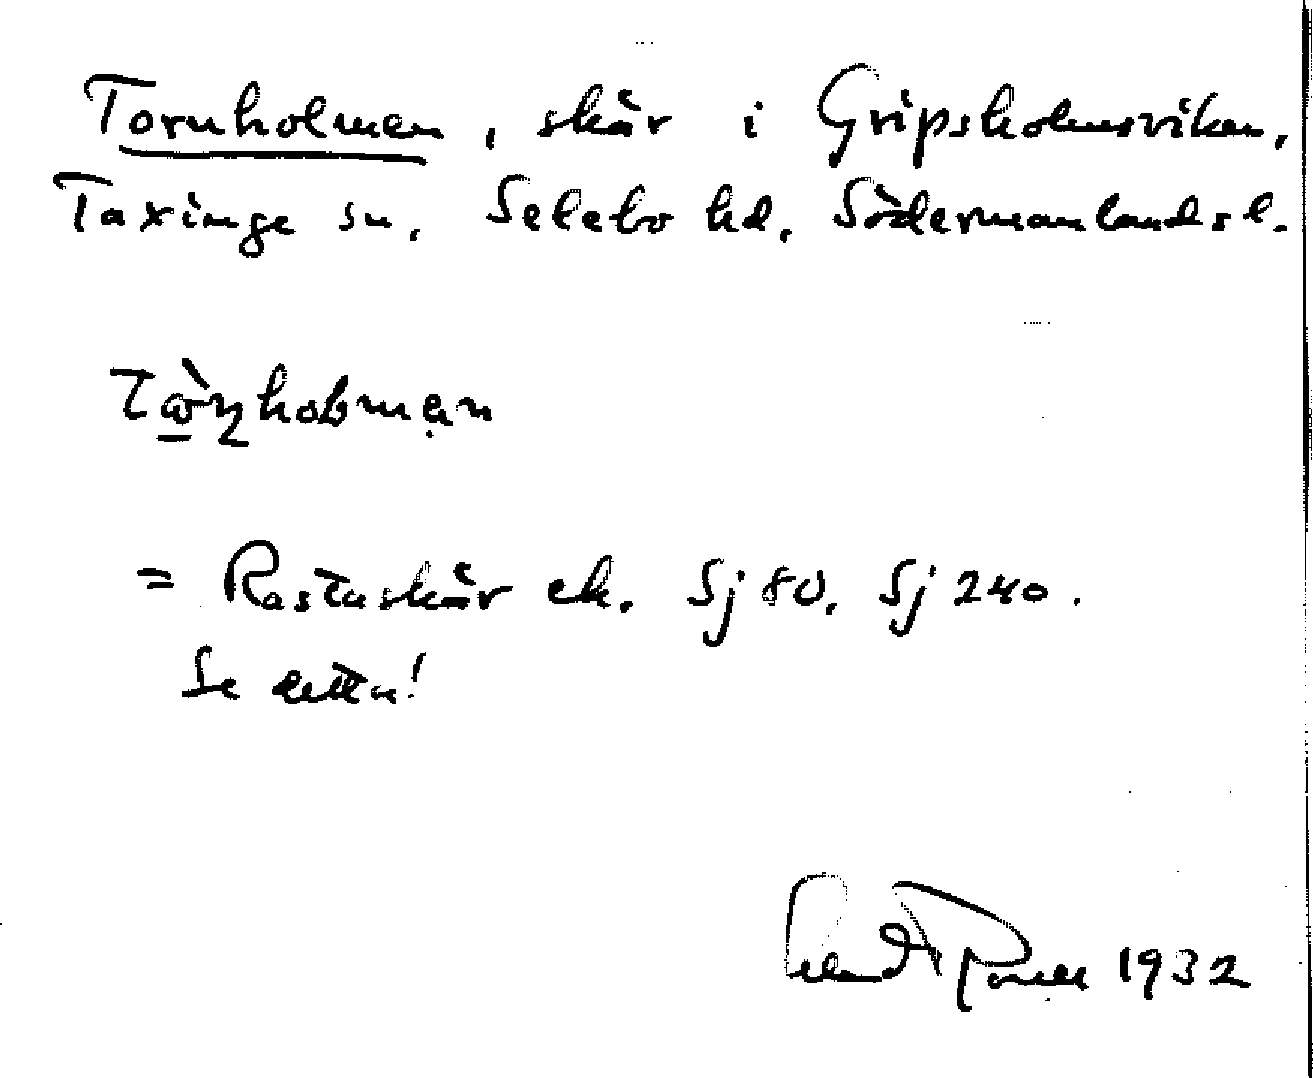 Tornholmen, skär i Gripsholmsviken,
Taxinge sn. Selebo hd. Södermanlands l.
= Rastaskär ek. Sj 80. Sj 240.
Se detta!
1932